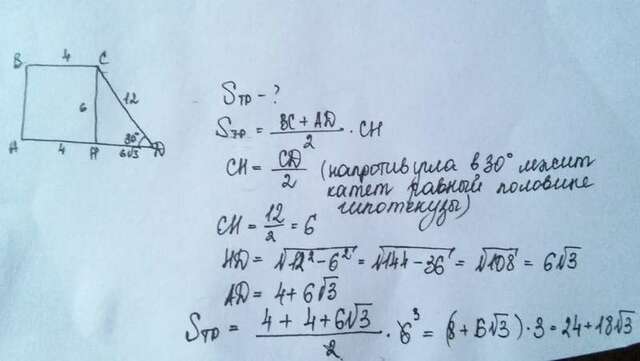 B 4 C
6 12
30°
A 4 H 6√3 D
Sтр - ?
Sтр = (BC + AD)/2 · CH
CH = CD/2 (напротив угла в 30° лежит
катет равный половине
гипотенузы)
CH = 12/2 = 6
HD = √(12² - 6²) = √(144 - 36) = √108 = 6√3
AD = 4 + 6√3
Sтр = (4 + 4 + 6√3)/2 · 6 ³ = (8 + 6√3) · 3 = 24 + 18√3